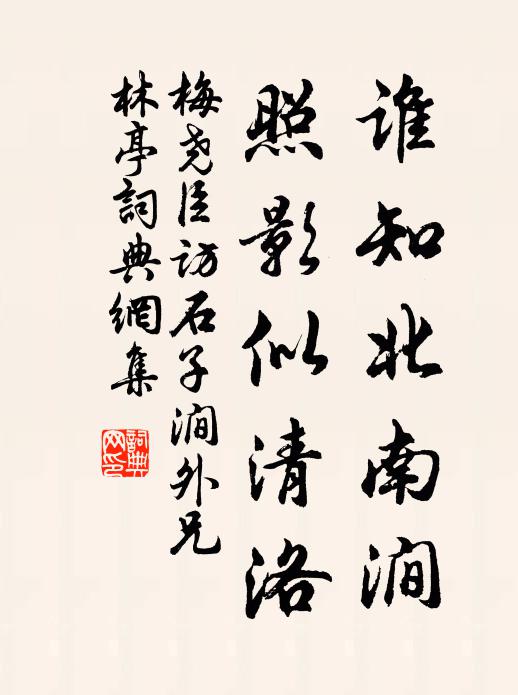 誰知北南澗
照影似清洛
梅尧臣访石子澗外兄
林亭詞典網集
詞典
网印